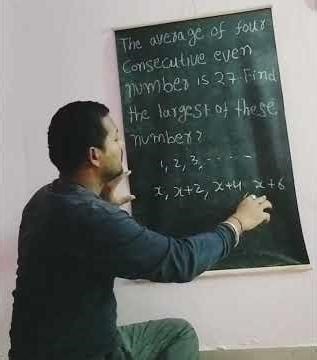 The average of four
Consecutive even
number is 27. Find
the largest of these
number?
1, 2, 3, ......
x, x+2, x+4 x+6